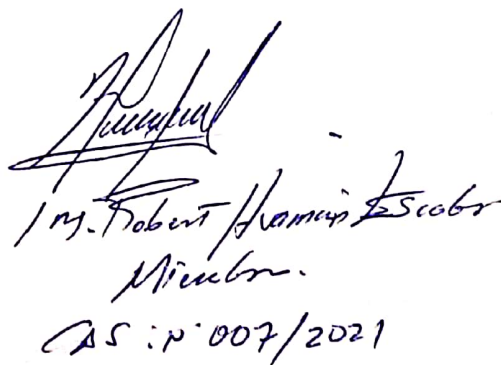 Ing. Robert Huamán Escobar
Miembro.
CAS : N° 007/2021